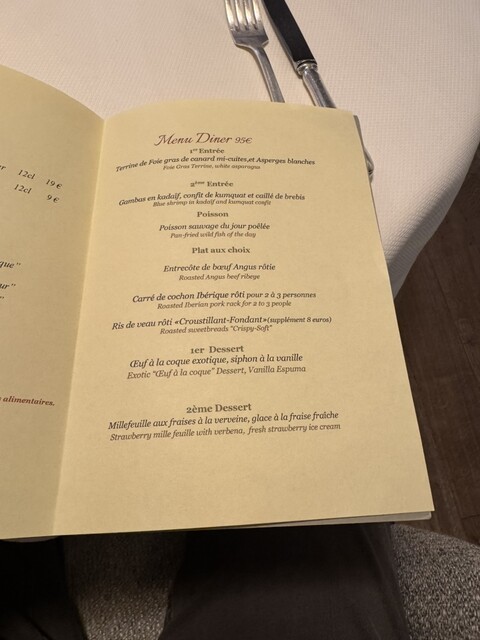 12cl 19€
12cl 9€
alimentaires.
Menu Dîner 95€
1ère Entrée
Terrine de Foie gras de canard mi-cuites,et Asperges blanches
Foie Gras Terrine, white asparagus
2ème Entrée
Gambas en kadaïf, confit de kumquat et caillé de brebis
Blue shrimp in kadaif and kumquat confit
Poisson
Poisson sauvage du jour poêlée
Pan-fried wild fish of the day
Plat aux choix
Entrecôte de bœuf Angus rôtie
Roasted Angus beef ribeye
Carré de cochon Ibérique rôti pour 2 à 3 personnes
Roasted Iberian pork rack for 2 to 3 people
Ris de veau rôti «Croustillant-Fondant»(supplément 8 euros)
Roasted sweetbreads "Crispy-Soft"
1er Dessert
Œuf à la coque exotique, siphon à la vanille
Exotic "Œuf à la coque" Dessert, Vanilla Espuma
2ème Dessert
Millefeuille aux fraises à la verveine, glace à la fraise fraîche
Strawberry mille feuille with verbena, fresh strawberry ice cream